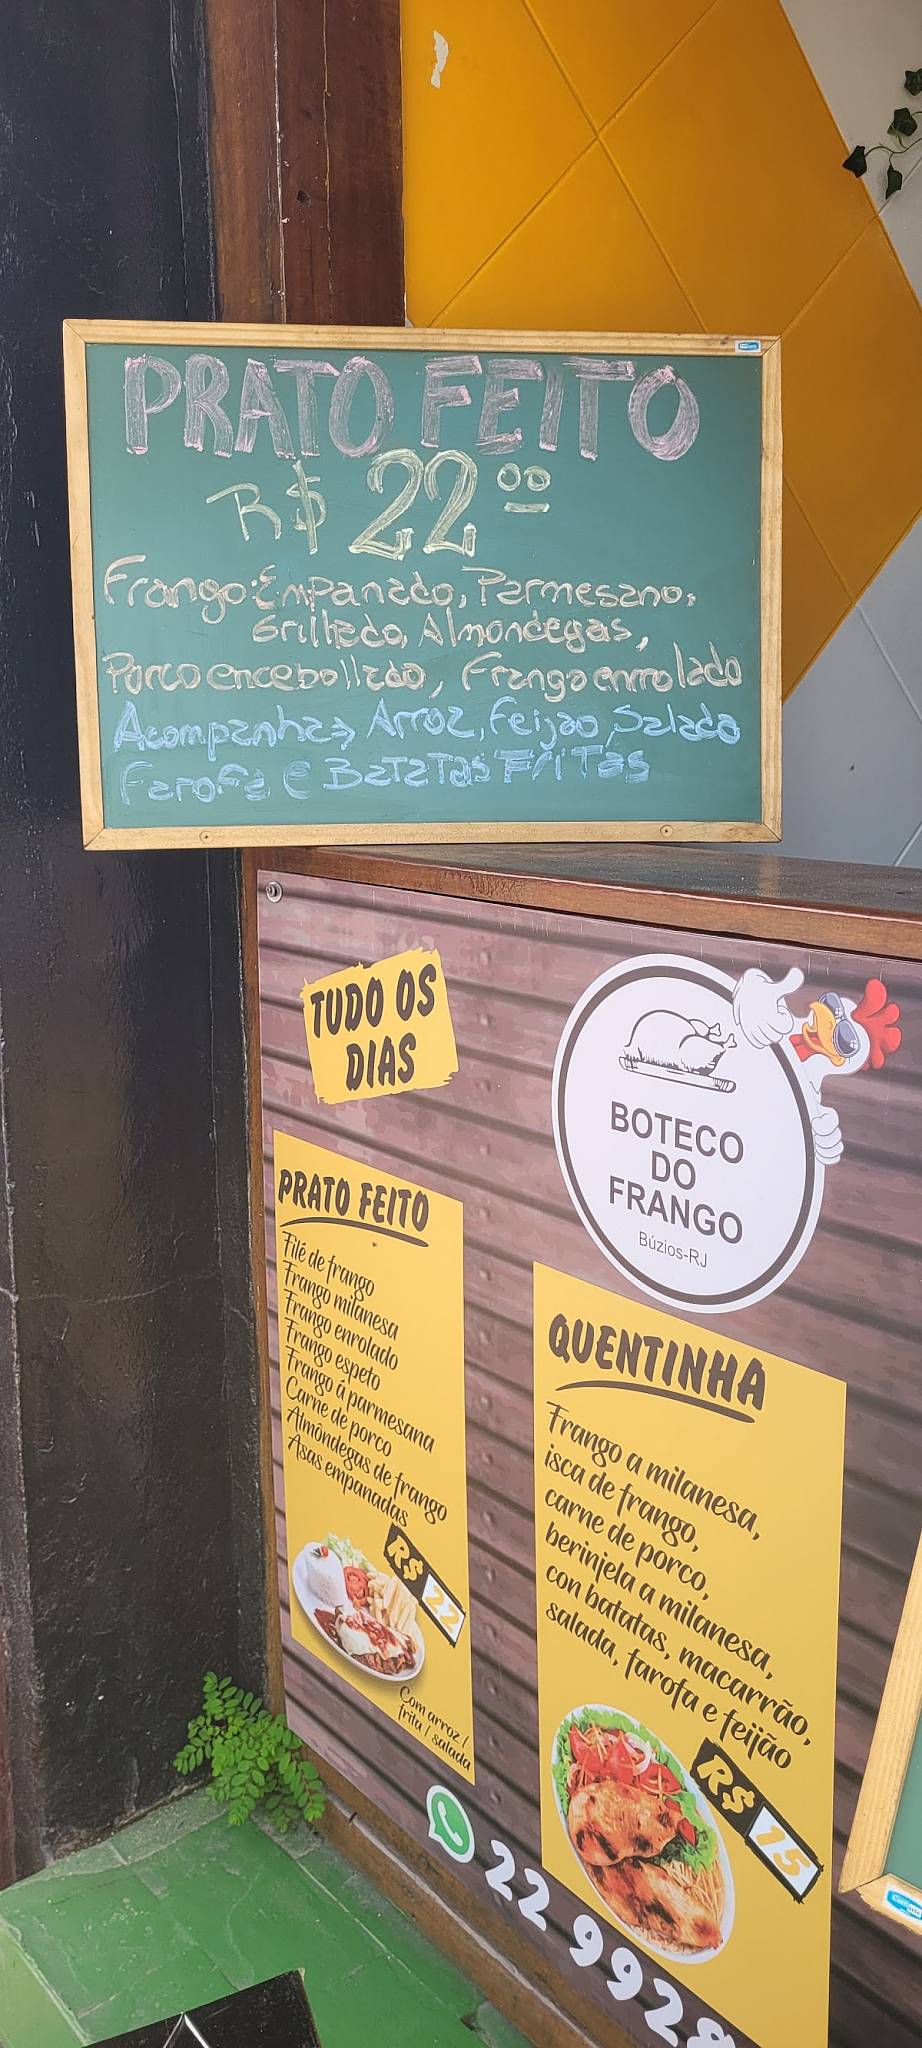 PRATO FEITO
R$ 22,00
Frango: Empanado, Parmesano,
Grilhado, Almondegas,
Porco encebollado, Frango enrrolado
Acompanha → Arroz, Feijao, Salada
Farofa e Batatas Fritas
TUDO OS
DIAS
BOTECO
DO
FRANGO
Búzios-RJ
PRATO FEITO
Filé de frango
Frango milanesa
Frango enrolado
Frango espeto
Frango á parmesana
Carne de porco
Almôndegas de frango
Asas empanadas
R$ 22
Com arroz /
frita / salada
QUENTINHA
Frango a milanesa,
isca de frango,
carne de porco,
berinjela a milanesa,
con batatas, macarrão,
salada, farofa e feijão
R$ 15
22 9928